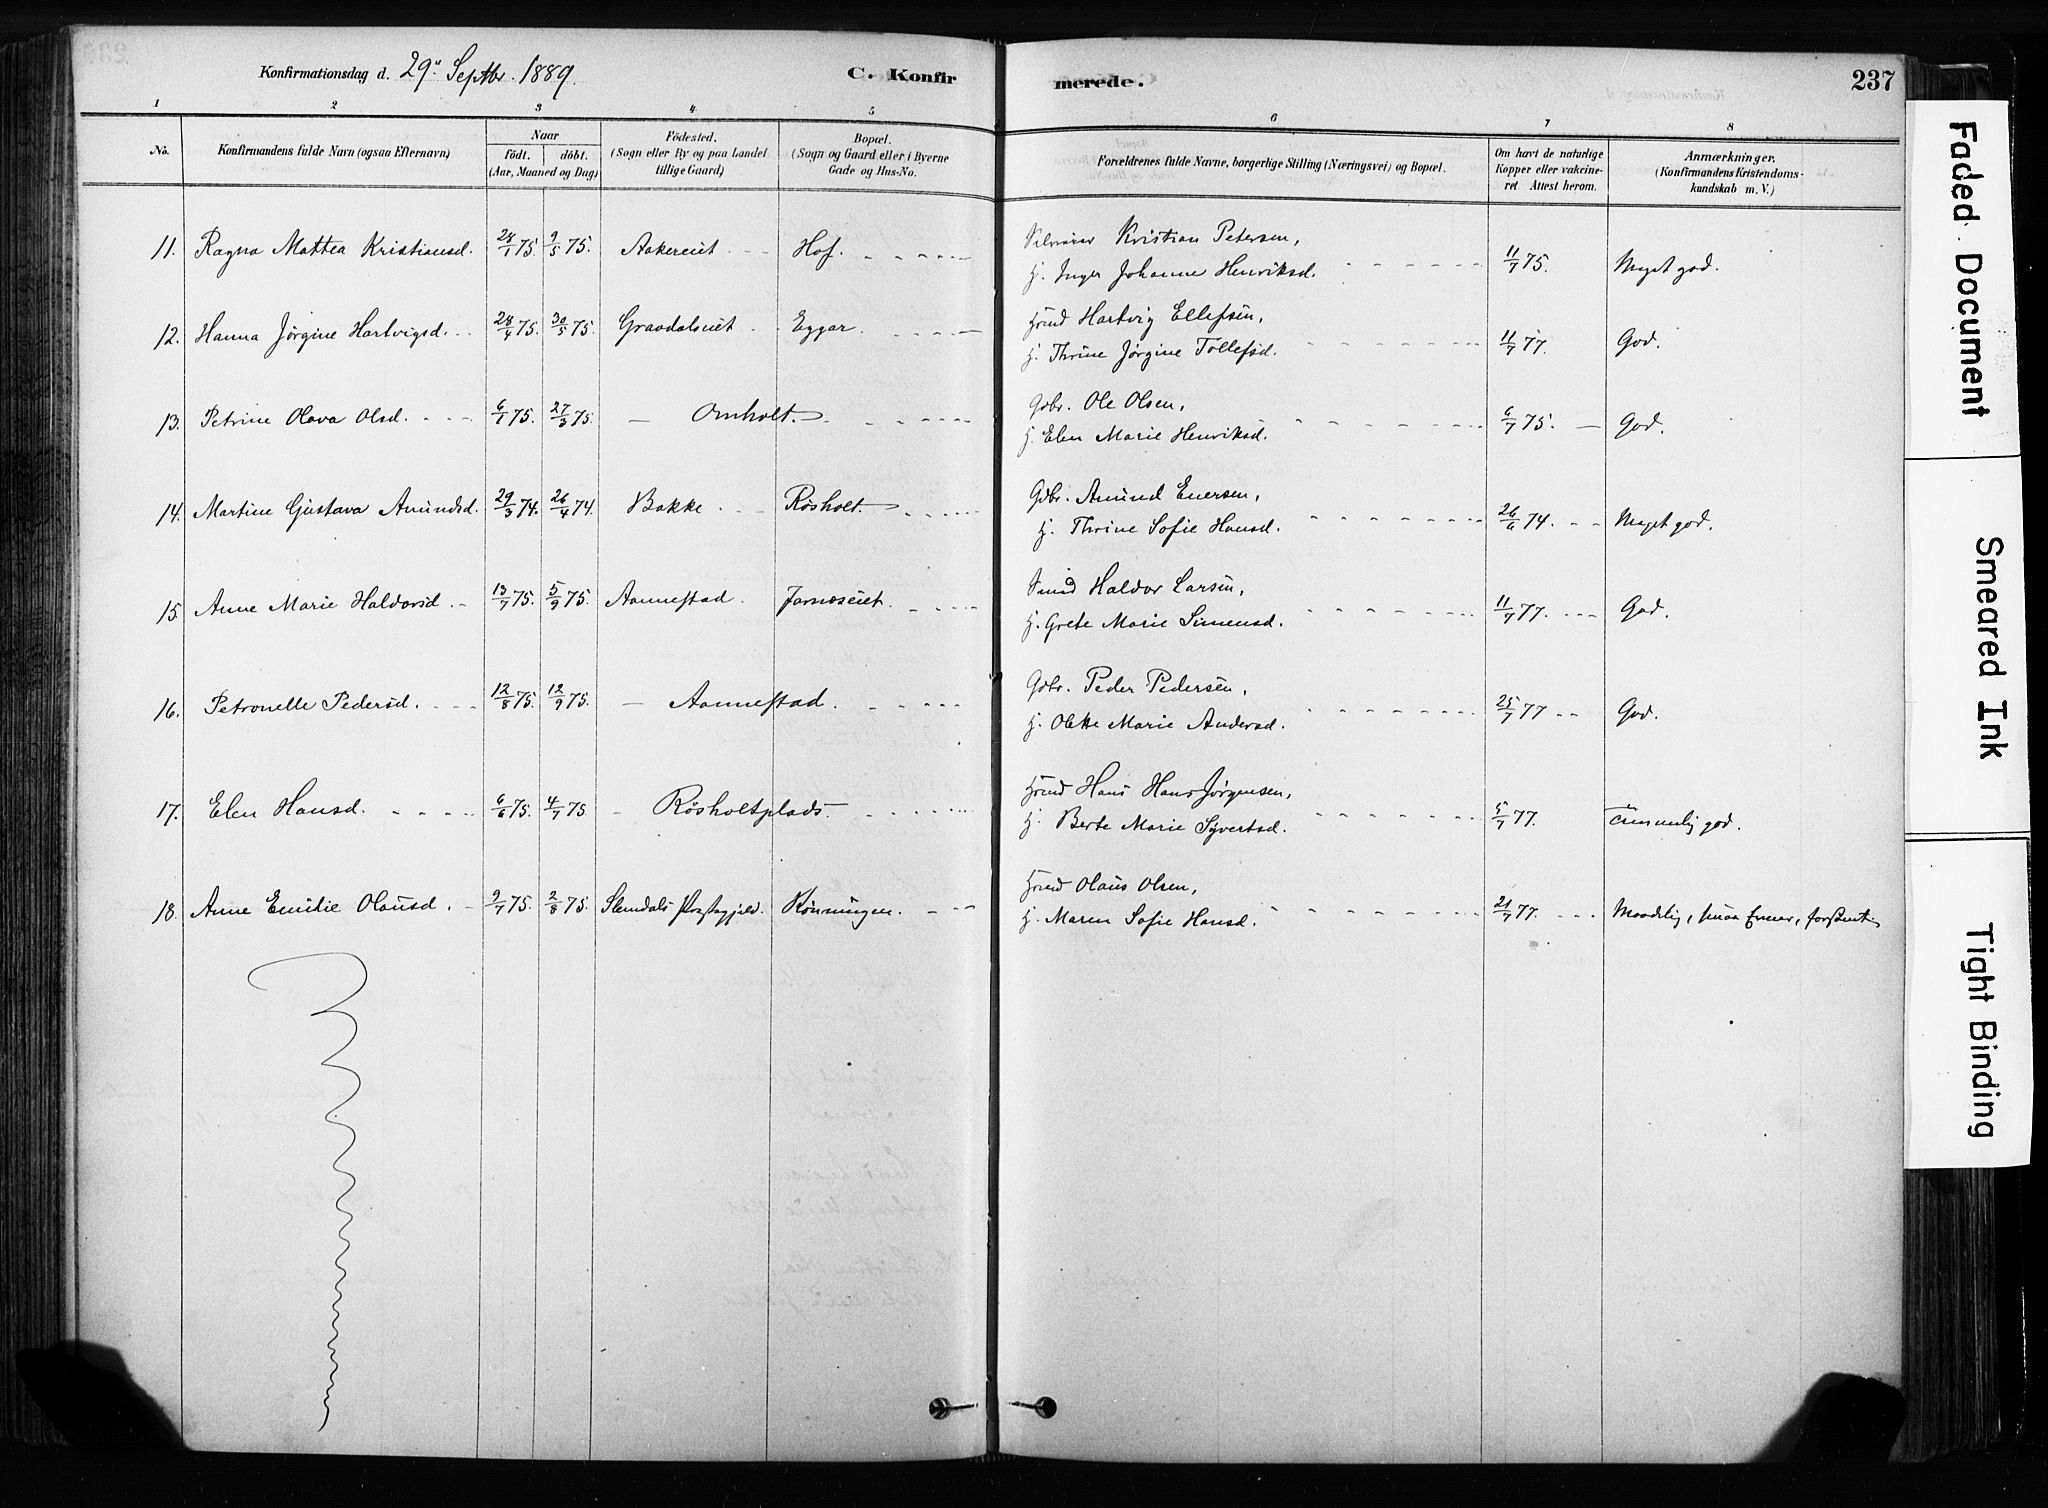 Konfirmationsdag d. 29de Septbr. 1889. C. Konfirmerede. 237
1 2 3 4 5 6 7 8
No. Konfirmandens fulde Navn (ogsaa Efternavn) Naar födt. döbt. (Aar, Maaned og Dag) Födested. (Sogn eller By og paa Landet tillige Gaard) Bopæl. (Sogn og Gaard eller i Byerne Gade og Hus-No. Forældrenes fulde Navne, borgerlige Stilling (Næringsvei) og Bopæl. Om havt de naturlige Kopper eller vakcineret. Attest herom. Anmærkninger. (Konfirmandens Kristendomskundskab m. V.)
11. Ragna Mattea Kristiansd. 28/1 75. 9/5 75. Aakereiet Hof. Kristian Petersen,
H. Inger Johanne Henriksd. 11/7 75. Meget god.
12. Hanna Jørgine Hartvigsd. 28/4 75. 30/5 75. Gravdalseiet Eggar. Hmd Hartvig Ellefsen,
H. Thrine Jørgine Tollefsd. 11/7 77. God.
13. Petrine Olava Olsd. 6/1 75. 27/3 75. — Omholt. Gdbr. Ole Olsen,
H. Elen Marie Henriksd. 6/7 75. — God.
14. Martine Gustava Amundsd. 29/3 74. 26/4 74. Bakke Røsholt. Gdbr. Amund Enersen,
H. Thrine Sofie Hansd. 26/6 74. Meget god.
15. Anne Marie Haldorsd. 13/7 75. 5/9 75. Aannestad. Jarnæseiet. Smed Haldor Larsen,
H. Grete Marie Simensd. 11/7 77. God.
16. Petronelle Pedersd. 12/8 75. 12/9 75. — Aannestad. Gdbr. Peder Pedersen,
H. Olkke Marie Andersd. 25/7 77 God.
17. Elen Hansd. 6/6 75. 4/7 75. Røsholtplads. Hmd Hans Hans Jørgensen,
H. Berte Marie Syvertsd. 5/7 77. Temmelig god.
18. Anne Emilie Olausd. 9/7 75. 2/8 75. Slemdals Præstegjeld. Rønningen. Hmd Olaus Olsen,
H. Maren Sofie Hansd. 21/7 77. Maadelig, smaa Evner,
Faded Document
Smeared Ink
Tight Binding